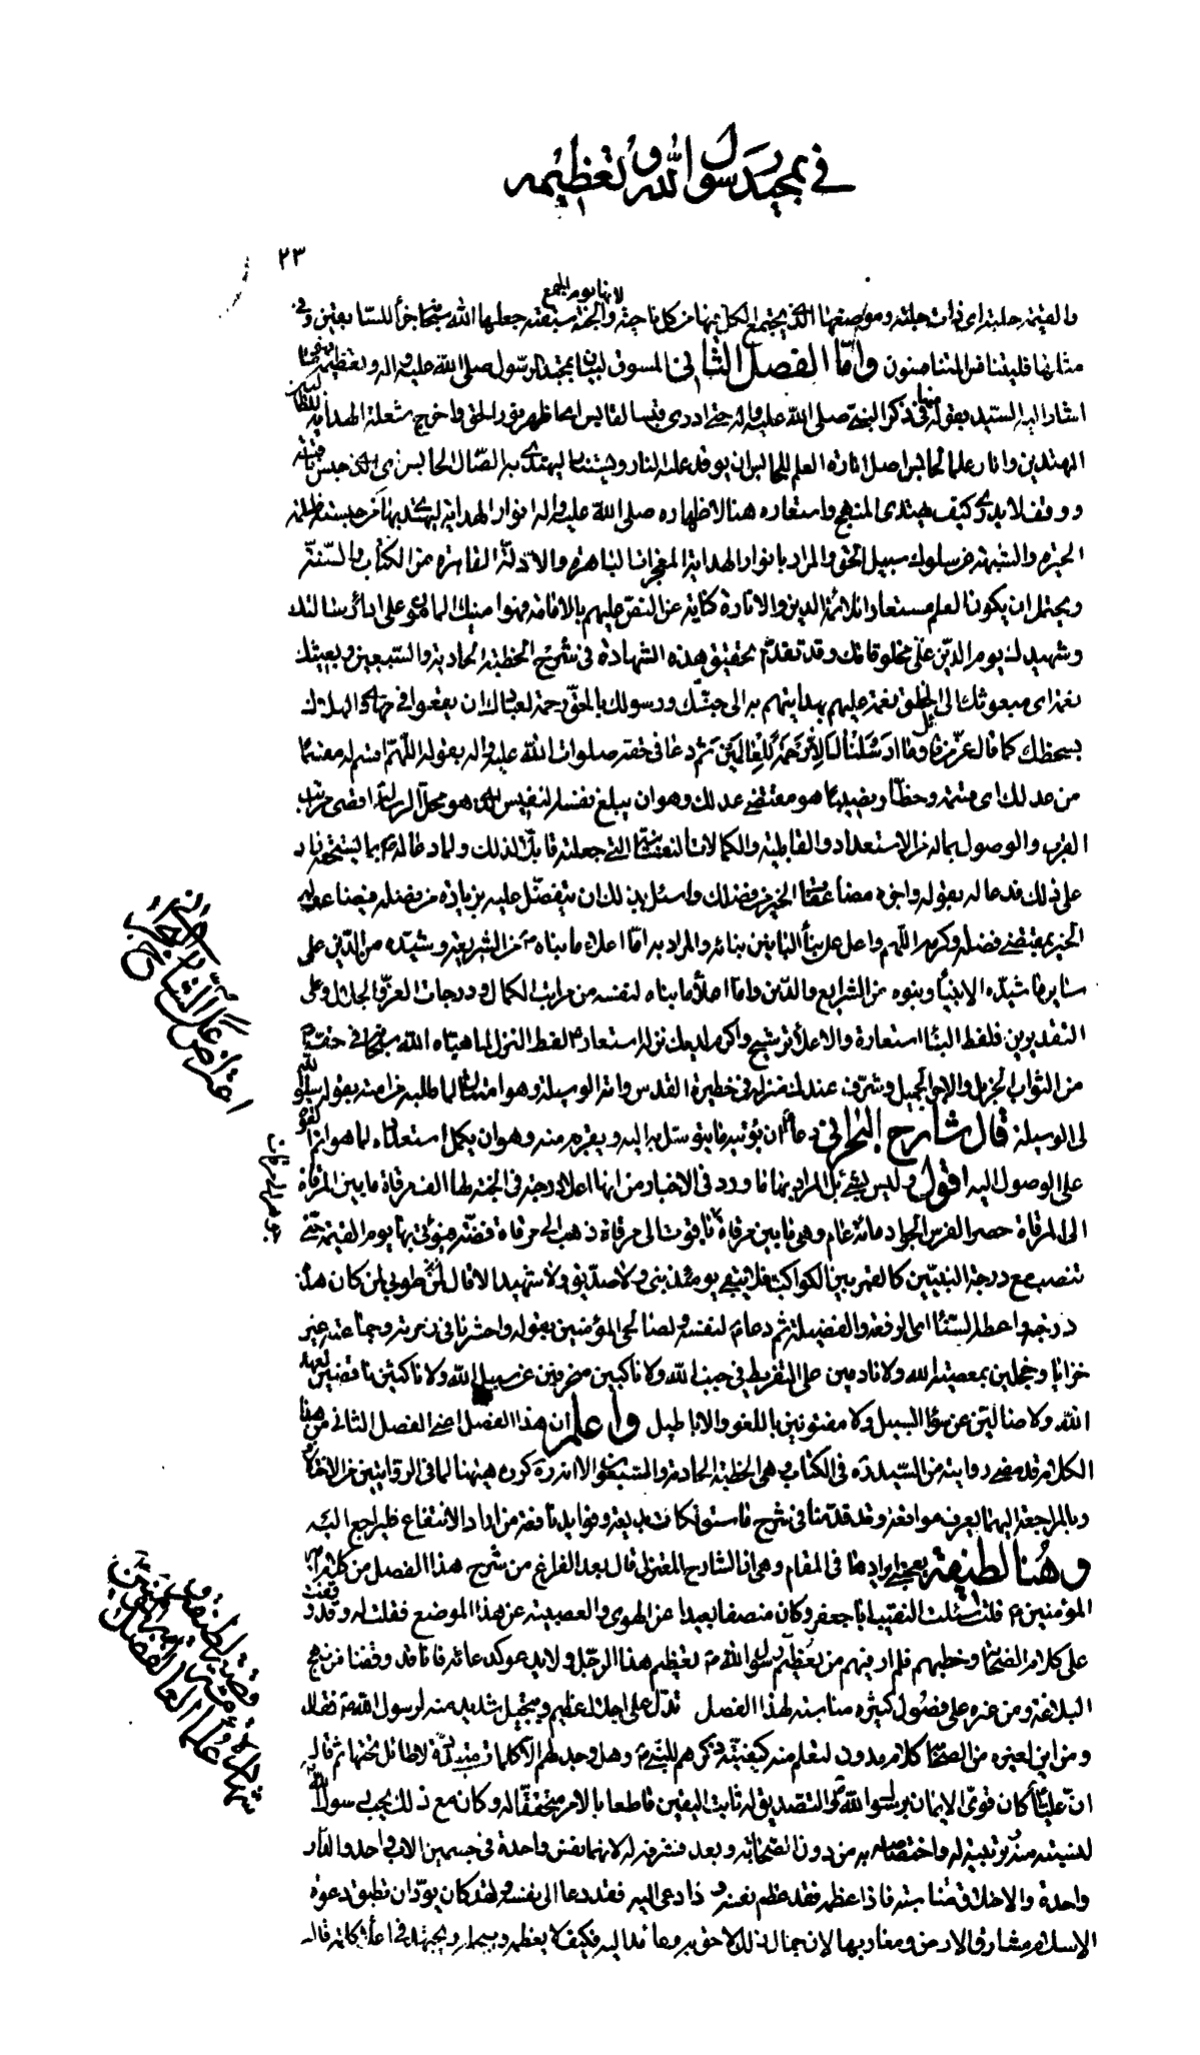 في تمجيد رسول الله و تعظيمه
٢٣
لانها يوم الجمع
والقيمة حلبته اى ذات حلبته وموضعها الذى يجتمع الكل بها من كل ناحية والجنة سبقته جعلها الله سبحانه جزأ للسابقين وفى
مثلها فليتنافس المتنافسون واما الفصل الثانى المسوق لبيان تمجيد الرسول صلى الله عليه واله وتعظيمه
اشار اليه السيد بقوله منها فى ذكر النبى صلى الله عليه واله حتى اورى قبسا لقابس اى اظهر نور الحق واخرج شعلة الهداية للطالبين
المهتدين وانار علما لحابس اصل انارة العلم للحابس ان يوقد عليه النار ويستنار ليهتدى به الضال الحابس اى الذى حبس ناقته
ووقف لا يدرى كيف يهتدى المنهج واستعاره هنا لاظهاره صلى الله عليه واله انوار الهداية ليهتدى بها من حبسته ظلمة
الحيرة والشبهة عن سلوك سبيل الحق والمراد بانوار الهداية المعجزات الباهرة والادلة القاهرة من الكتاب والسنة
ويحتمل ان يكون العلم مستعارا لائمة الدين والانارة كناية عن النص عليهم بالامامة فهو امينك المامون على اداء رسالتك
وشهيدك يوم الدين على مخلوقاتك وقد تقدم تحقيق هذه الشهادة فى شرح الخطبة الحادية والسبعين وبعيثك
نعمة اى مبعوثك الى الخلق نعمة عليهم بهدايتهم به الى جنتك ورسولك بالحق رحمة لعبادك ان يقعوا فى مهاوى الهلاك
بسخطك كما قال عز من قائل وما ارسلناك الا رحمة للعالمين ثم دعا فى حقه صلوات الله عليه واله بقوله اللهم اقسم له مقسما
من عدلك اى قسمة وحظا ونصيبا هو مقتضى عدلك وهو ان يبلغ نفسه النفيس الذى هو محل الرسالة اقصى مراتب
القرب والوصول بماله من الاستعداد والقابلية والكمالات النفسانية التى جعلته قابلا لذلك ولما دعا له بما يستحقه زاد
على ذلك فدعا له بقوله واجزه مضاعفات الخير من فضلك واسئل بذلك ان يتفضل عليه بزيادة من فضله فيضاعف له
الخير بمقتضى فضله وكرمه اللهم واعل على بناء البانين بنائه والمراد به اما اعلاء ما بناه من الشريعة وشيده من الدين على
سائر ما شيده الانبياء وبنوه من الشرايع والدين واما اعلاء ما بناه لنفسه من مراتب الكمال ودرجات العز والجلال وعلى
التقديرين فلفظ البناء استعارة والاعلاء ترشيح واكرم لديك نزله استعار لفظ النزل لما هياه الله سبحانه فى حقه
من الثواب الجزيل والاجر الجميل وشرف عندك منزله فى حظيرة القدس واته الوسيلة وهو امتثال لما طلبه من امته بقوله سلوا الله
لى الوسيلة قال شارح البحرانى دعا ان يؤتيه ما يتوسل به اليه ويقربه منه وهو ان يكمل استعداده لما هو اتم القوة
على الوصول اليه اقول وليس بشئ بل المراد بها ما ورد فى الاخبار من انها اعلى درجة فى الجنة لها الف مرقاة ما بين المرقاة
الى المرقاة حضر الفرس الجواد مائة عام وهى ما بين مرقاة ياقوت الى مرقاة ذهب الى مرقاة فضة فيؤتى بها يوم القيمة حتى
تنصب مع درجة النبيين كالقمر بين الكواكب فلا يبقى يومئذ نبى ولا صديق ولا شهيد الا قال طوبى لمن كان هذه
درجته واعطه السناء اى الرفعة والفضيلة ثم دعا لنفسه ولصالحى المؤمنين بقوله واحشرنا فى زمرته وجماعته غير
خزايا وخجلين بمعصية الله ولا نادمين على التفريط فى جنب الله ولا ناكبين منحرفين عن سبيل الله ولا ناكثين ناقضين لعهد
الله ولا ضالين عن سواء السبيل ولا مفتونين باللغو والاباطيل واعلم ان هذا الفصل اعنى الفصل الثانى من هذا
الكلام قد مضى روايته من السيد ره فى الكتاب وهى الخطبة الحادية والسبعون الا انه ره كرره ههنا لما فى الروايتين من الاختلاف
وبالمراجعة اليهما يعرف مواقعه وقد قدمنا فى شرح ما سبق نكات بديعة وفوايد نافعة من اراد الانتفاع فليراجع اليه
وهنا لطيفة يعجبنى ايرادها فى المقام وهى ان الشارح المعتزلى قال بعد الفراغ من شرح هذا الفصل من كلام امير
المؤمنين قلت سئلت النقيب ابا جعفر وكان منصفا بعيدا عن الهوى والعصبية عن هذا الموضع فقلت له وقد وقفت
على كلام الصحابة وخطبهم فلم ار فيهم من يعظم رسول الله تعظيم هذا الرجل ولا يدعو كدعائه فانا قد وقفنا من نهج
البلاغة ومن غيره على فصول كثيرة مناسبة لهذا الفصل تدل على اجلال عظيم وتبجيل شديد منه لرسول الله فقال
ومن اين لغيره من الصحابة كلام مدون لتعلم منه كيفية ذكرهم للنبى وهل وجد لهم الا كلمات مبتدرة لا طائل تحتها ثم قال
ان عليا كان قوى الايمان برسول الله والتصديق له ثابت اليقين قاطعا بالامر متحققا له وكان مع ذلك يحب رسول الله
لنسبته منه وتربيته له واختصاصه به من دون اصحابه وبعد فشرفه له لانهما نفس واحدة فى جسمين الاب واحد والدار
واحدة والاخلاق متناسبة فاذا عظمه فقد عظم نفسه واذا دعى اليه فقد دعا الى نفسه ولقد كان يود ان تطبق دعوة
الاسلام مشارق الارض ومغاربها لان جمال ذلك لاحق به وعائد اليه فكيف لا يعظمه ويبجله ويجتهد فى اعلاء كلمته فقال
اعتراض على الشارح البحرانى